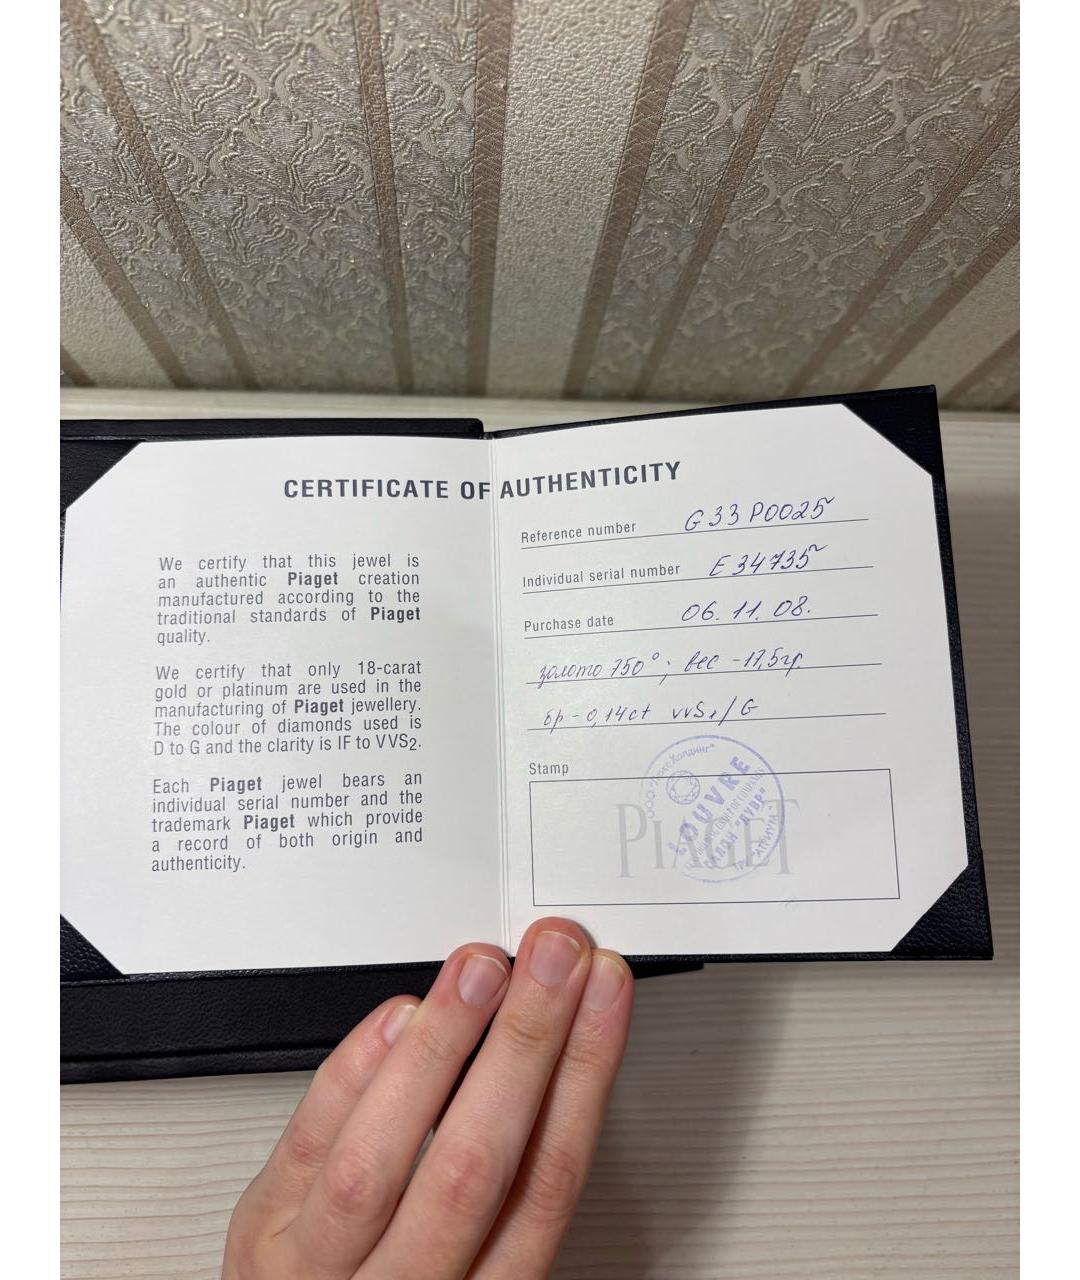 CERTIFICATE OF AUTHENTICITY
We certify that this jewel is
an authentic Piaget creation
manufactured according to the
traditional standards of Piaget
quality.
We certify that only 18-carat
gold or platinum are used in the
manufacturing of Piaget jewellery.
The colour of diamonds used is
D to G and the clarity is IF to VVS2.
Each Piaget jewel bears an
individual serial number and the
trademark Piaget which provide
a record of both origin and
authenticity.
Reference number G33P0025
Individual serial number E34735
Purchase date 06.11.08.
золото 750°; вес -17,5гр.
бр - 0,14ct VVS1/G
Stamp
PIAGET
LOUVRE
САЛОН "ЛУВР"